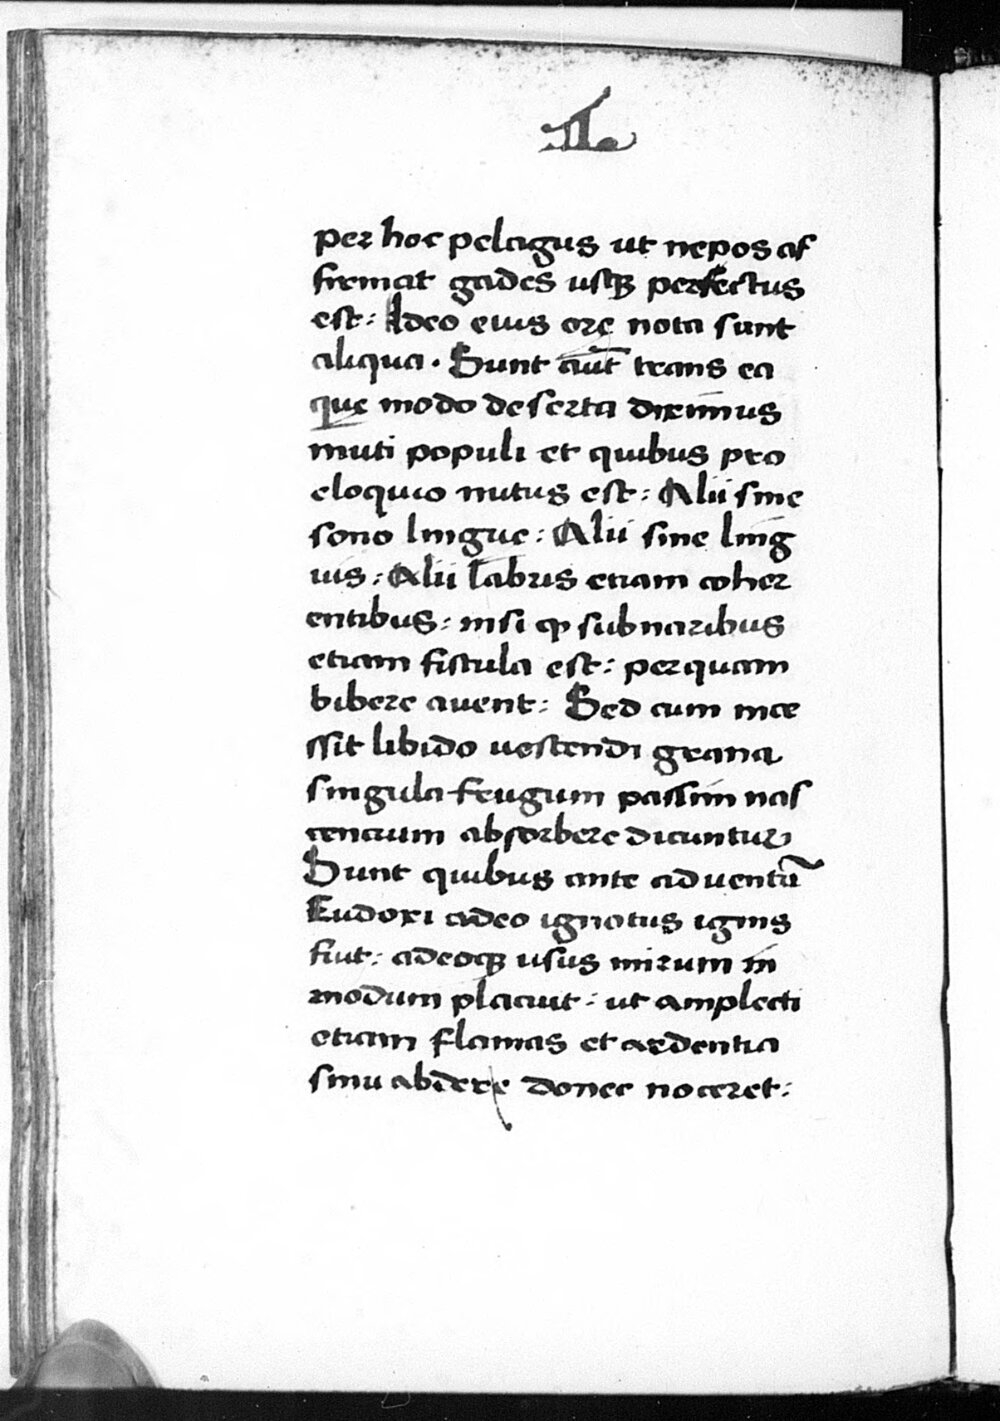 per hoc pelagus ut nepos af
firmat gades usqꝫ perfectus
est: Ideo eius ore nota sunt
aliqua. Sunt aut̄ trans ea
que modo deserta diximus
muti populi et quibus pro
eloquio nutus est: Alii sine
sono lingue: Alii sine ling
uis: Alii labris etiam coher
entibus: nisi ꝙ sub naribus
etiam fistula est: per quam
bibere auent: Sed cum ince
ssit libido uescendi grana
singula frugum passim nas
centium absorbere dicuntur
Sunt quibus ante aduentū
Eudoxi adeo ignotus ignis
fiut: adeoqꝫ usus mirum in
modum placuit: ut amplecti
etiam flamas et ardentia
sinu abdere donec noceret: